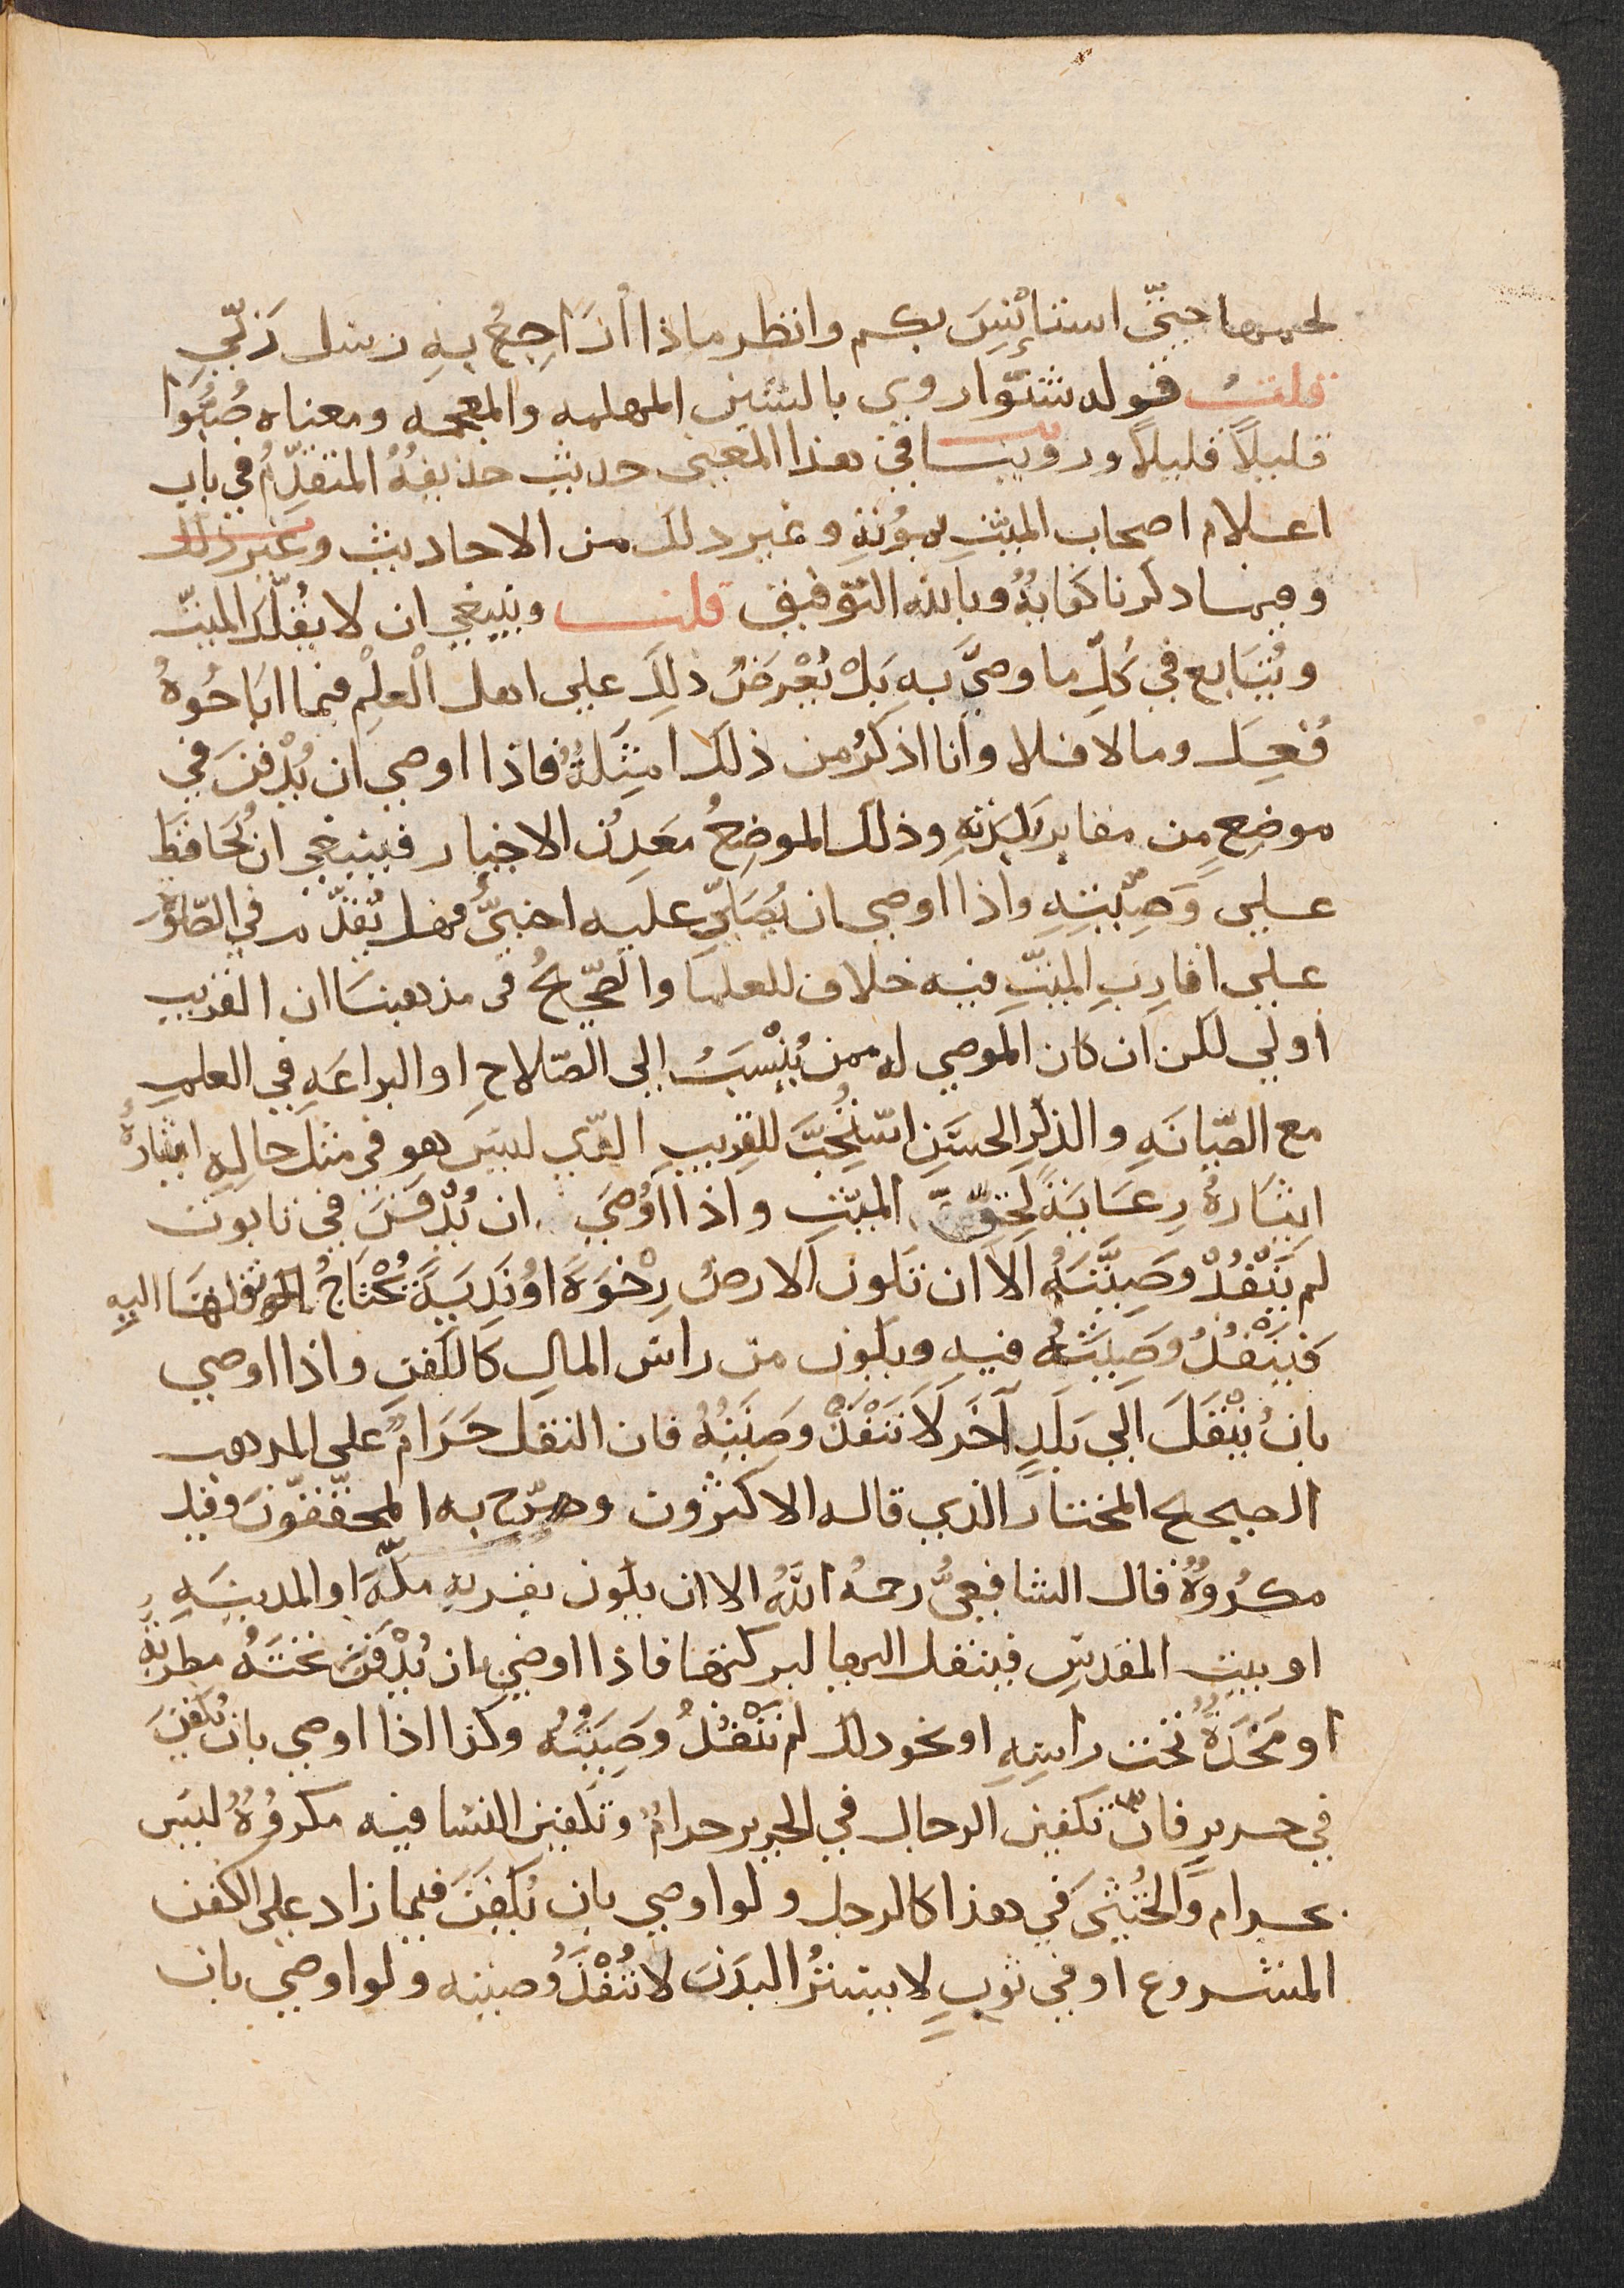 لحمها حتّى استأنس بكم وانظر ماذا أراجع به رسل ربّي
قلت قوله شنّوا روي بالشين المهلمه والمعجمه ومعناه صُبُّوا
قليلاً قليلاً وروينا في هذا المعنى حديث حذيفهُ المتقدّمُ في باب
اعلام اصحاب الميّتِ بموتهِ وغير ذلك من الاحاديث وغير ذلك
وفيما ذكرنا كفايةٌ وبالله التوفيق قلت وينبغي ان لا يُقلّد الميّت
ويُتابع في كُلِّ ما وصّي به بَلْ يُعْرَضُ ذلِكَ علي اهل الْعلِمْ فما اباحُوهُ
فُعِلَ وما لا فلا وانا اذكرُ من ذلك امثِلةً فاذا اوصي ان يُدْفنَ في
موضعٍ من مقابر بَلدتهِ وذلك الموضعُ مَعدِنُ الاخيار فينبغي ان يُحَافظَ
علي وَصِيّتِهِ واذا اوصي ان يُصَلّي عليه اجنبيٌّ فهل يُقدّم في الصّلوة
علي اقاربِ الميّتِ فيه خلاف للعلما والصّحيحُ في مذهبنا ان القريب
اولي لكن ان كان الموصي له ممن يُنْسَبُ الي الصّلاحِ او البراعَهِ في العلمِ
مع الصّيانَهِ والذكرِ الحسَنِ استُحِبَّ للقريبِ الذي ليسَ هو في مثل حالهِ ايثارهُ
ايثارهُ رِعَايَةً لِحَقِّ الميّتِ واذا أوْصَي ان يُدْفَنَ في تابوت
لم يَنْفُذْ وصِيَّتَهُ الا ان تكون الارضُ رِخْوَةَ اوْ نَدِيَةً يُحْتَاجُ اليه
فَيَنْفُذُ وصِيّتُهُ فيه ويكون من راس المالِ كالكَفنِ واذا اوصي
بانْ يُنْقَلَ الَي بَلَدٍ آخَرَ لَا تَنْفُذْ وصِيّتُهُ فان النقل حَرَامٌ علي المذهب
الصحيح المختار الذي قاله الاكثرُون وصرّح به المحقّقونَ وقيل
مكرُوهٌ قال الشافعيُّ رحمهُ اللهُ الا ان يكون بقربِ مكّهَ او المدينهِ
او بيتِ المقدسِ فينقل اليها لبركتها فاذا اوصي بان يُدْفَنَ تحتَهُ مطربهٌ
او مَخَدّةٌ تحت راسِهِ او نحو ذلك لم تَنْفُذْ وصِيّتُهُ وكذا اذا اوصي بان يُكفّنَ
في حرير فانّ تكفين الرجال في الحرير حرامٌ وتكفين النسا فيه مكروهٌ ليسَ
بحرام وَالخُنْثَي في هذا كالرجل ولو اوصي بان يُكفّنَ فيما زاد علي الكفن
المشروع او في ثوبٍ لا يَستُرُ البدَنَ لا تُنْفَذُ وصيته ولو اوصي بان